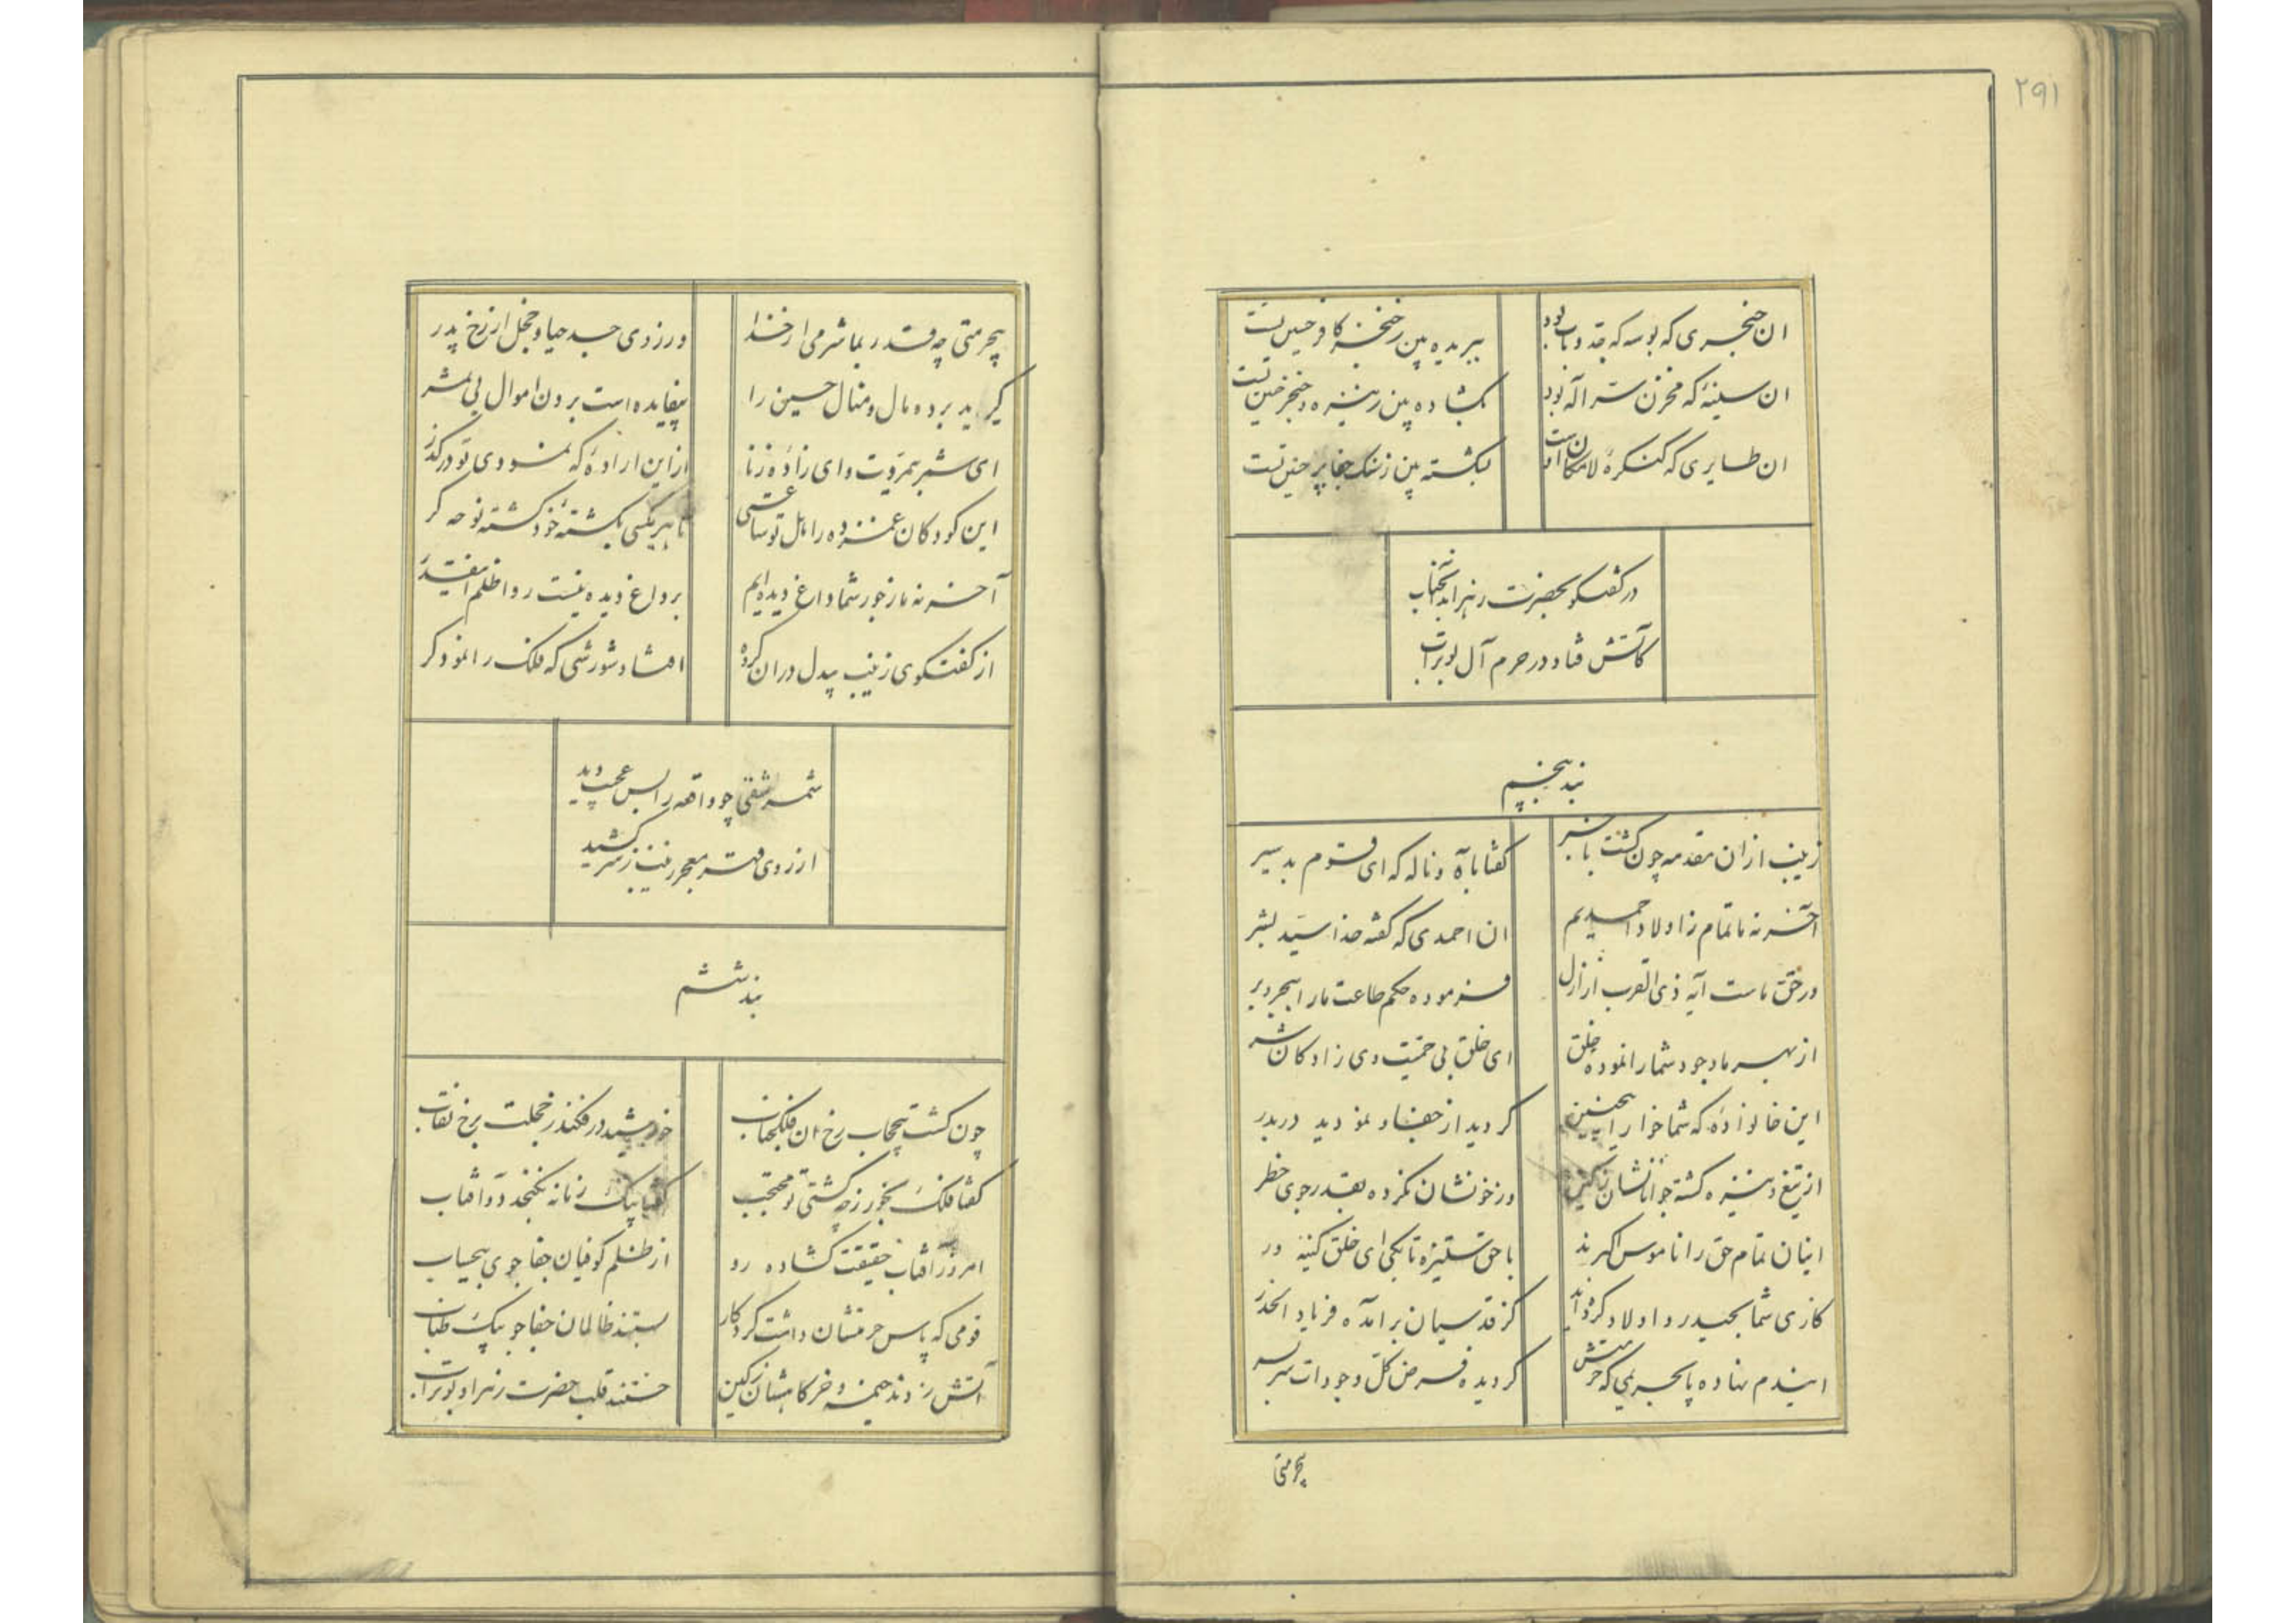 ۲۹۱
ان حنجری که بوسه که جد و باب بود
ببریده بین ز خنجر کافر حسین تست
ان سینهٔ که مخزن سر اله بود
بکشاده بین ز نیزه و خنجر حسین تست
ان طایری که کنکرهٔ لامکان
بکشته بین ز سنک جفا پر حسین تست
در کفتکو بحضرت زهرا بد انجناب
کاتش فتاد در حرم آل بوتراب
بند پنجم
زینب از ان مقدمه چون کشت با خبر
کفتا باه و ناله که ای قوم بد سیر
آخر نه ما تمام ز اولاد احمدیم
ان احمدی که کفته خدا سید بشر
در حق ماست آیه ذی القرب از ازل
فرموده حکم طاعت ما را ببحر و بر
از بهر ما وجود شما را نموده خلق
ای خلق بی حمیت و ای زادکان شر
این خانوادهٔ که شما خوار اینچنین
کردید از جفا و نمودید دربدر
از تیغ و نیزه کشته جوانانشان ز کین
وز خونشان نکرده بقدر جوی حظر
اینان تمام حق را ناموس اکبرند
با حق ستیزه تا بکی ای خلق کینه ور
کاری شما بحیدر و اولاد کرده‌اند
کز قدسیان برامده فریاد الحذر
ایندم نهاده پا بحریمی که حرمتش
کردیده فرض کل وجودات سربسر
بیحرمتی
بیحرمتی چه قدر بما شرمی از خدا
ور ز وی جسد حیا و خجل از رخ پدر
کیرید برد و مال و منال حسین را
بیفایده است بردن اموال بی ثمر
ای شمر بیمروت و ای زادهٔ زنا
از این ارادهٔ که نمودی تو درکذر
این کودکان غمزده را بهل تو ساعتی
تا هر یکی بکشتهٔ خود کشته نوحه کر
آخر نه ما ز خور شما داغ دیده‌ایم
بر داغ دیده نیست روا ظلم اینقدر
از کفتکوی زینب بیدل در ان کروه
افتاد شورشی که فلک را نمود کر
شمر شقی چو واقعه را بس عجیب دید
از روی قهر معجر زینب ز سر کشید
بند ششم
چون کشت بیحجاب رخ ان فلک جناب
خورشید در فکند ز خجلت برخ نقاب
کفتا فلک بخور ز چه کشتی تو محتجب
کفتا بیک زمانه نکنجد دو آفتاب
امروز آفتاب حقیقت کشاده رو
از ظلم کوفیان جفاجوی بیحیاب
قومی که پاس حرمتشان داشت کردکار
بستند ظالمان جفاجو بیک طناب
آتش زدند خیمه و خرکاهشان ز کین
خستند قلب حضرت زهرا و بوتراب